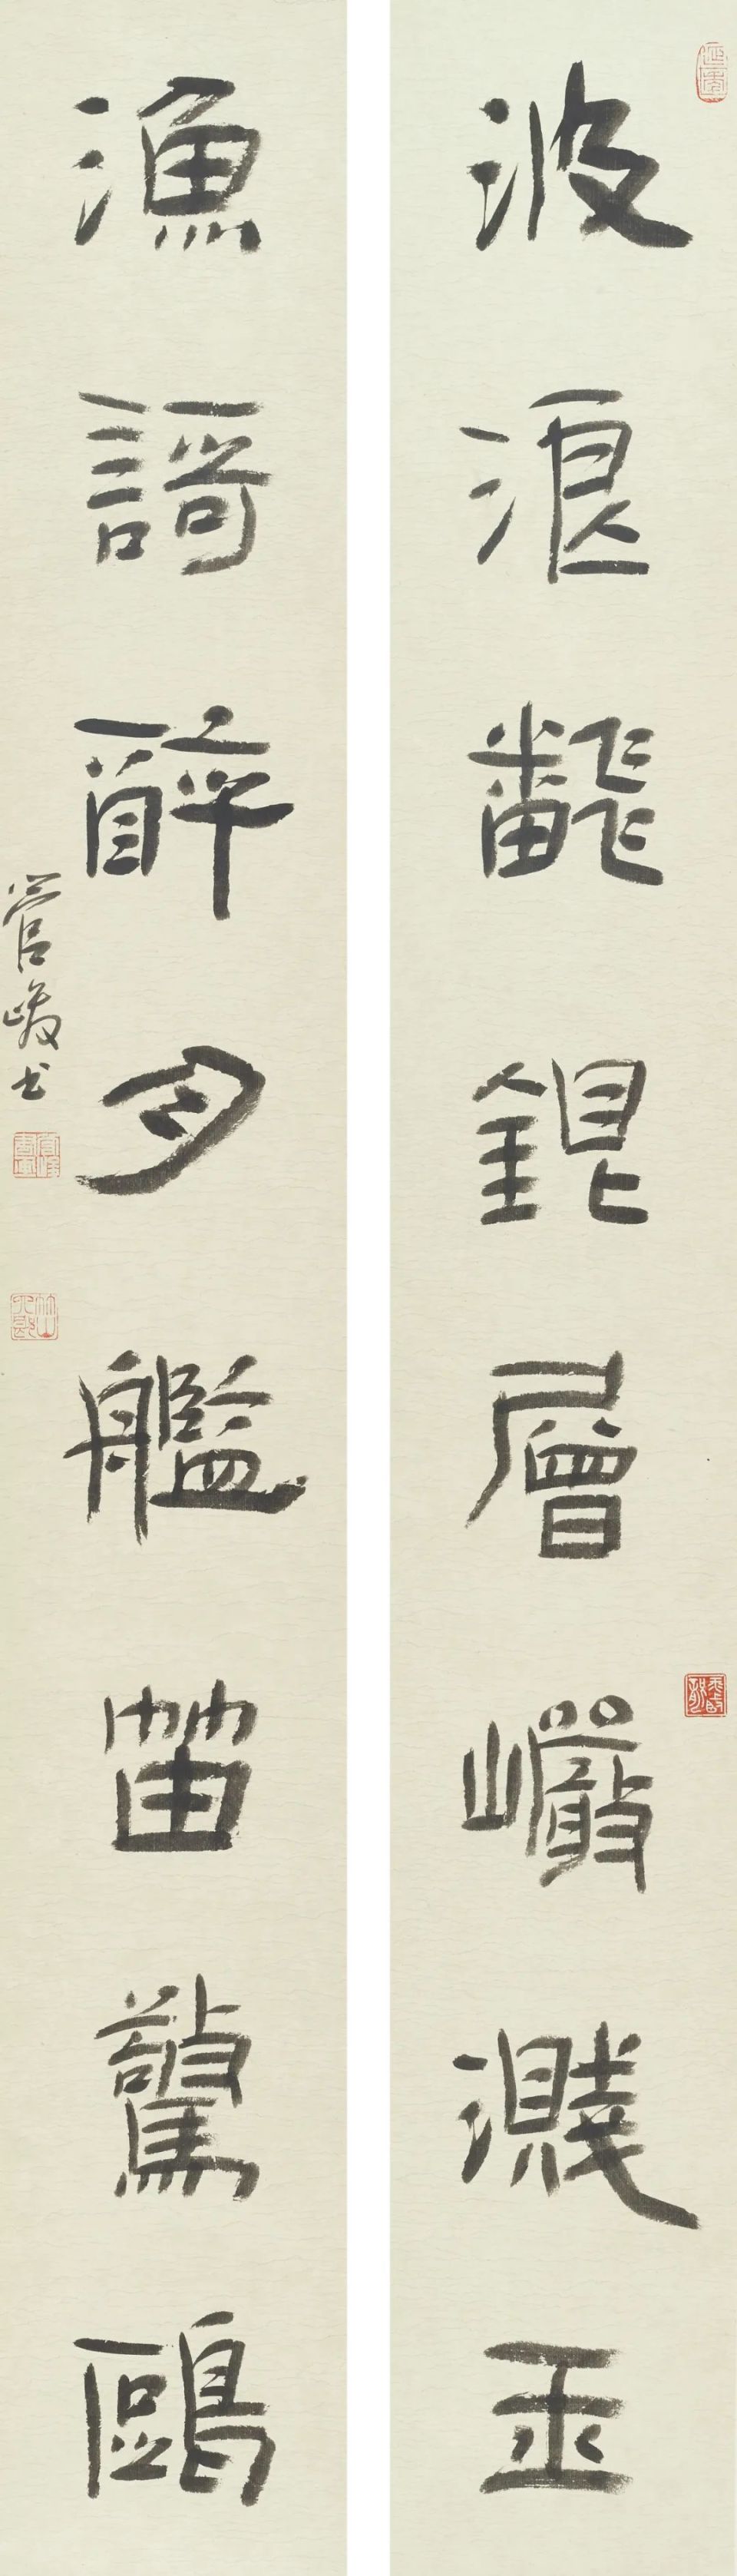 波浪飜銀層巗濺玉
漁謌醉月艦笛驚鷗
管峻书